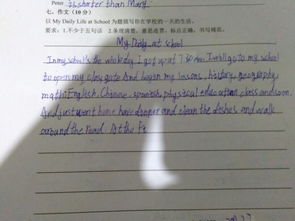 Peter is shorter than Mary.
七、作文(10分)
以 My Daily Life at School 为题描写你在学校的一天的生活。
要求：1.不少于五句话 2.条理清楚，意思连贯，标点正确，书写规范。
My Daily at school
In my school's the I got up at 7 to my school
to open my class gate And began my lessons, history, geography
math English. Chinese, spanish, physical education class and soon.
And just went home have dinner and clean the dishes and walk
around the road. At the